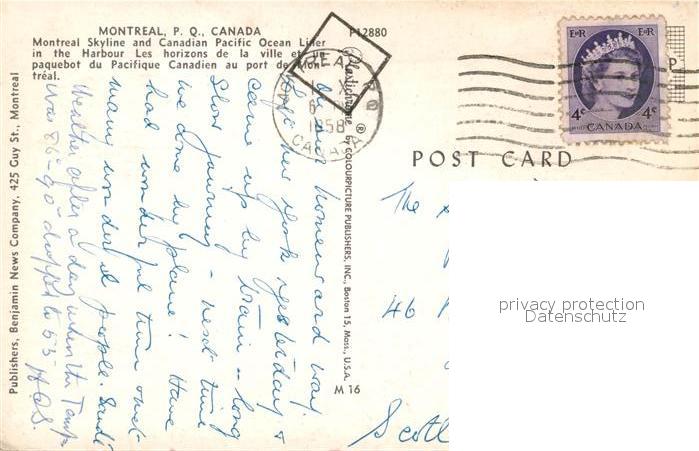 MONTREAL, P. Q., CANADA
P12880
Montreal Skyline and Canadian Pacific Ocean Liner
in the Harbour Les horizons de la ville et un
paquebot du Pacifique Canadien au port de Mon-
tréal.
Publishers, Benjamin News Company, 425 Guy St., Montreal
Plastichrome ® by COLOURPICTURE PUBLISHERS, INC., Boston 15, Mass., U.S.A.
M 16
1958
CANADA
E II R E II R
4c 4c
CANADA
POST CARD
On our homeward way.
New York yesterday &
came up by train - long
slow journey - next time
we come by plane! Have
had wonderful time and
many wonderful people.
Weather after a day when the Temp
was 86°-90° dropped to 53°
The
46
privacy protection
Datenschutz